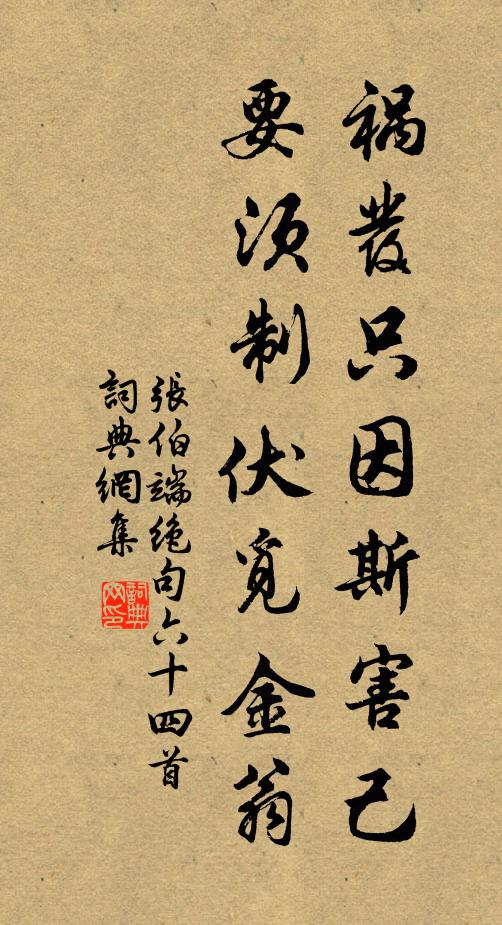 禍發只因斯害己
要須制伏覓金翁
張伯端絕句六十四首
詞典網集
詞典网印